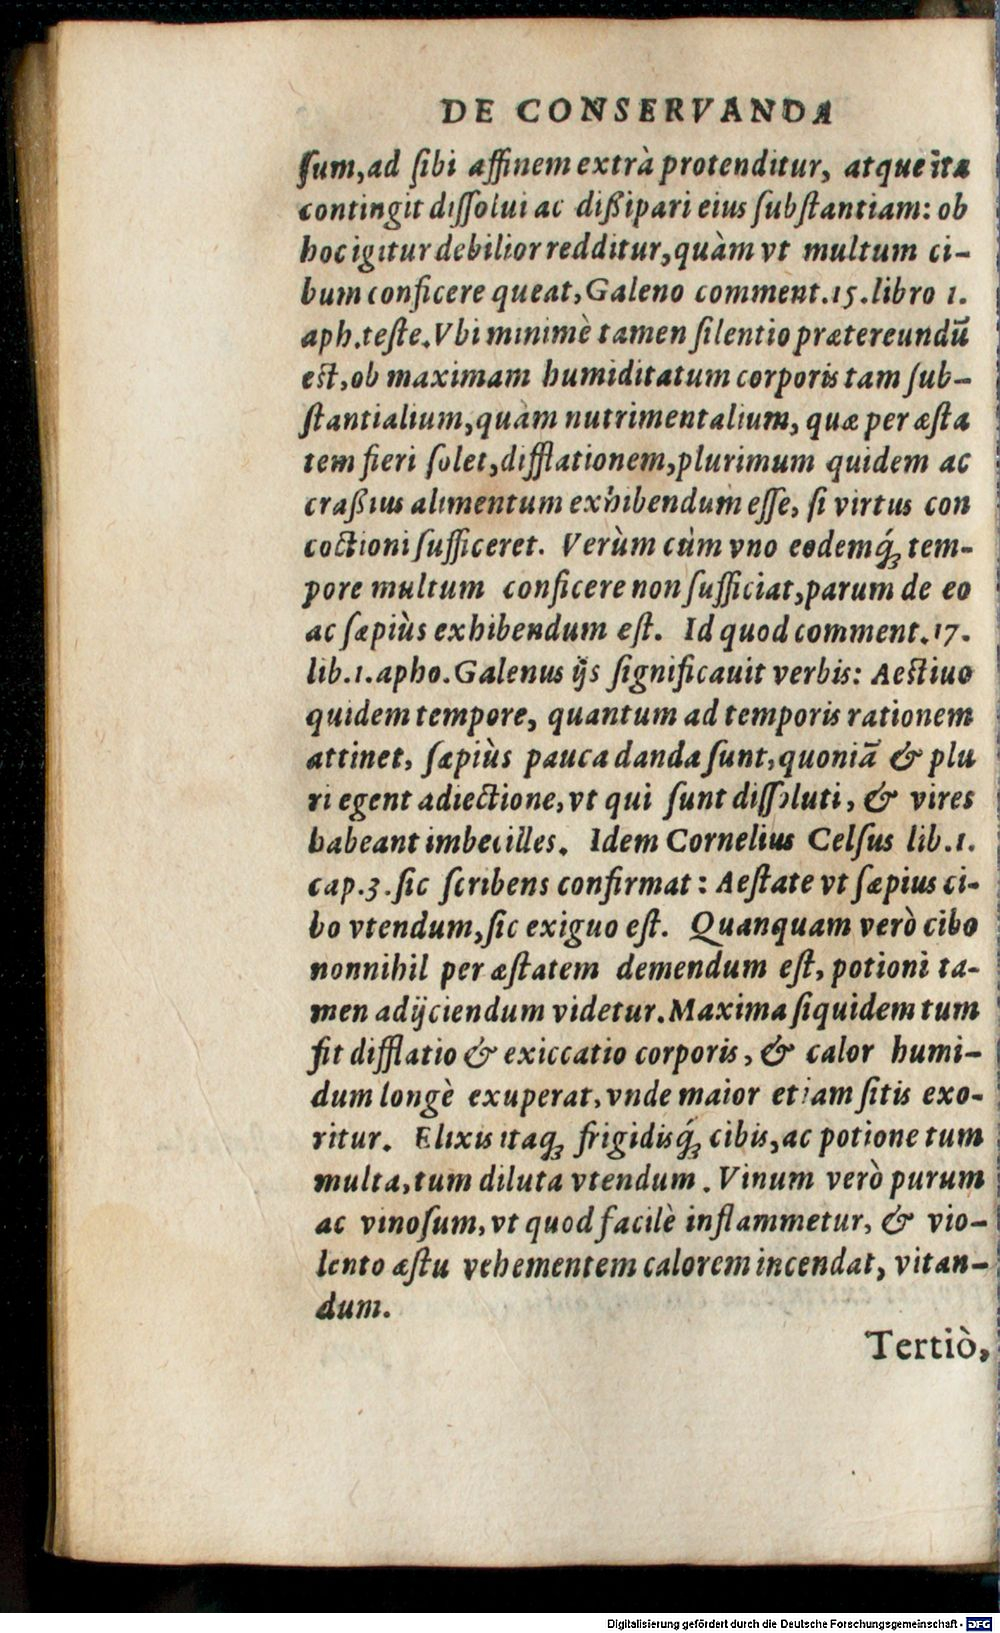 DE CONSERVANDA
ſum,ad ſibi affinem extrà protenditur, atque ita
contingit diſſolui ac dißipari eius ſubſtantiam: ob
hoc igitur debilior redditur,quàm vt multum ci-
bum conficere queat,Galeno comment.15.libro 1.
aph.teſte.Vbi minimè tamen ſilentio prætereundū
eſt,ob maximam humiditatum corporis tam ſub-
ſtantialium,quàm nutrimentalium, quæ per æſta
tem fieri ſolet,difflationem,plurimum quidem ac
craßius alimentum exhibendum eſſe, ſi virtus con
coctioni ſufficeret. Verùm cùm vno eodemq́; tem-
pore multum conficere non ſufficiat,parum de eo
ac ſæpiùs exhibendum eſt. Id quod comment.17.
lib.1.apho.Galenus ijs ſignificauit verbis: Aeſtiuo
quidem tempore, quantum ad temporis rationem
attinet, ſæpiùs pauca danda ſunt,quoniā & plu
ri egent adiectione,vt qui ſunt diſſoluti, & vires
habeant imbecilles. Idem Cornelius Celſus lib.1.
cap.3.ſic ſcribens confirmat: Aeſtate vt ſæpius ci-
bo vtendum,ſic exiguo eſt. Quanquam verò cibo
nonnihil per æſtatem demendum eſt, potioni ta-
men adijciendum videtur.Maxima ſiquidem tum
fit difflatio & exiccatio corporis, & calor humi-
dum longè exuperat,vnde maior etiam ſitis exo-
ritur. Elixis itaq; frigidisq́; cibis,ac potione tum
multa,tum diluta vtendum. Vinum verò purum
ac vinoſum,vt quod facilè inflammetur, & vio-
lento æſtu vehementem calorem incendat, vitan-
dum.
Tertiò,
Digitalisierung gefördert durch die Deutsche Forschungsgemeinschaft - DFG